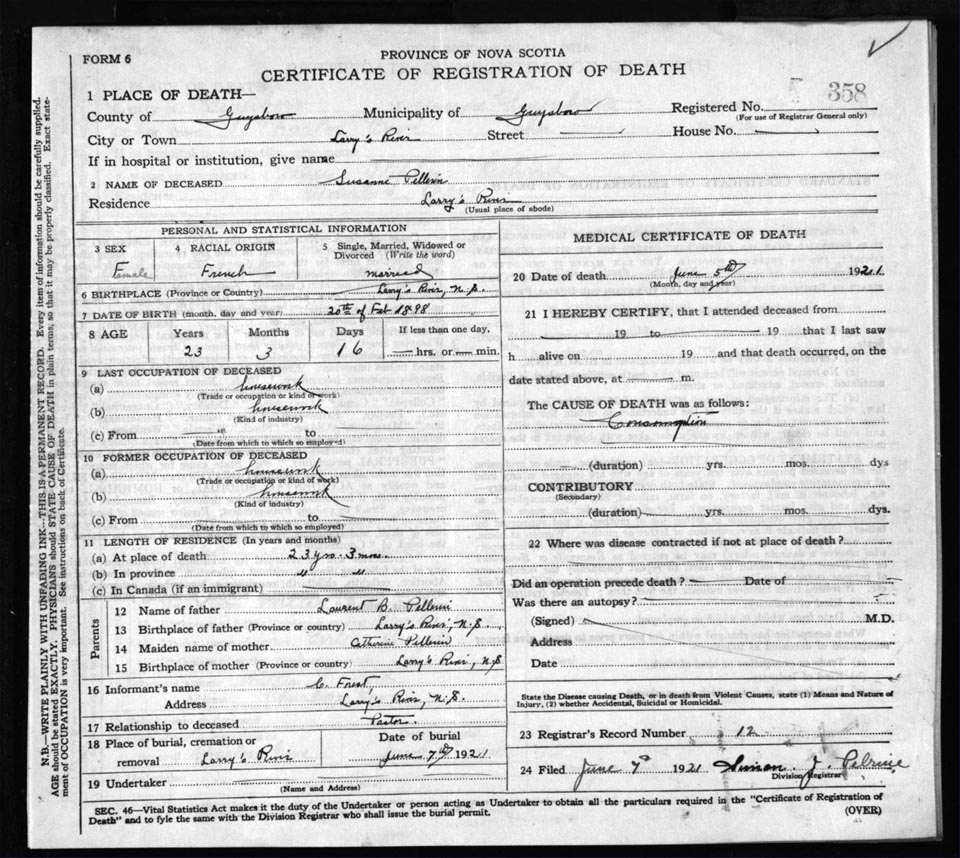 FORM 6
PROVINCE OF NOVA SCOTIA
CERTIFICATE OF REGISTRATION OF DEATH
1 PLACE OF DEATH—
358
County of Guysboro Municipality of Guysboro Registered No.
(For use of Registrar General only)
City or Town Larry's River Street House No.
If in hospital or institution, give name
2 NAME OF DECEASED Susanne Pellerin
Residence Larry's River
(Usual place of abode)
PERSONAL AND STATISTICAL INFORMATION
3 SEX 4 RACIAL ORIGIN 5 Single, Married, Widowed or
Divorced (Write the word)
Female French married
6 BIRTHPLACE (Province or Country) Larry's River, N.S.
7 DATE OF BIRTH (month, day and year) 20th of Feb 1898
8 AGE Years Months Days If less than one day,
23 3 16 hrs. or min.
9 LAST OCCUPATION OF DECEASED
(a) housework
(Trade or occupation or kind of work)
(b) housework
(Kind of industry)
(c) From to
(Date from which to which so employed)
10 FORMER OCCUPATION OF DECEASED
(a) housework
(Trade or occupation or kind of work)
(b) housework
(Kind of industry)
(c) From to
(Date from which to which so employed)
11 LENGTH OF RESIDENCE (In years and months)
(a) At place of death 23 yrs. 3 mos.
(b) In province " "
(c) In Canada (if an immigrant)
Parents
12 Name of father Laurent B. Pellerin
13 Birthplace of father (Province or country) Larry's River, N.S.
14 Maiden name of mother Catherine Pellerin
15 Birthplace of mother (Province or country) Larry's River, N.S
16 Informant's name C. Forest,
Address Larry's River, N.S.
17 Relationship to deceased Pastor
18 Place of burial, cremation or Date of burial
removal Larry's River June 7th 1921
19 Undertaker
(Name and Address)
MEDICAL CERTIFICATE OF DEATH
20 Date of death June 5th 1921
(Month, day and year)
21 I HEREBY CERTIFY, that I attended deceased from
19 to 19 that I last saw
h alive on 19 and that death occurred, on the
date stated above, at m.
The CAUSE OF DEATH was as follows:
Consumption
(duration) yrs. mos. dys
CONTRIBUTORY
(Secondary)
(duration) yrs. mos. dys.
22 Where was disease contracted if not at place of death?
Did an operation precede death? Date of
Was there an autopsy?
(Signed) M.D.
Address
Date
State the Disease causing Death, or in death from Violent Causes, state (1) Means and Nature of
Injury, (2) whether Accidental, Suicidal or Homicidal.
23 Registrar's Record Number 12
24 Filed June 7th 1921 Simon J. Pelrine
Division Registrar
SEC. 46—Vital Statistics Act makes it the duty of the Undertaker or person acting as Undertaker to obtain all the particulars required in the "Certificate of Registration of
Death" and to fyle the same with the Division Registrar who shall issue the burial permit.
(OVER)
N.B.—WRITE PLAINLY WITH UNFADING INK—THIS IS A PERMANENT RECORD. Every item of information should be carefully supplied.
AGE should be stated EXACTLY. PHYSICIANS should STATE CAUSE OF DEATH in plain terms, so that it may be properly classified. Exact state-
ment of OCCUPATION is very important. See instructions on back of Certificate.